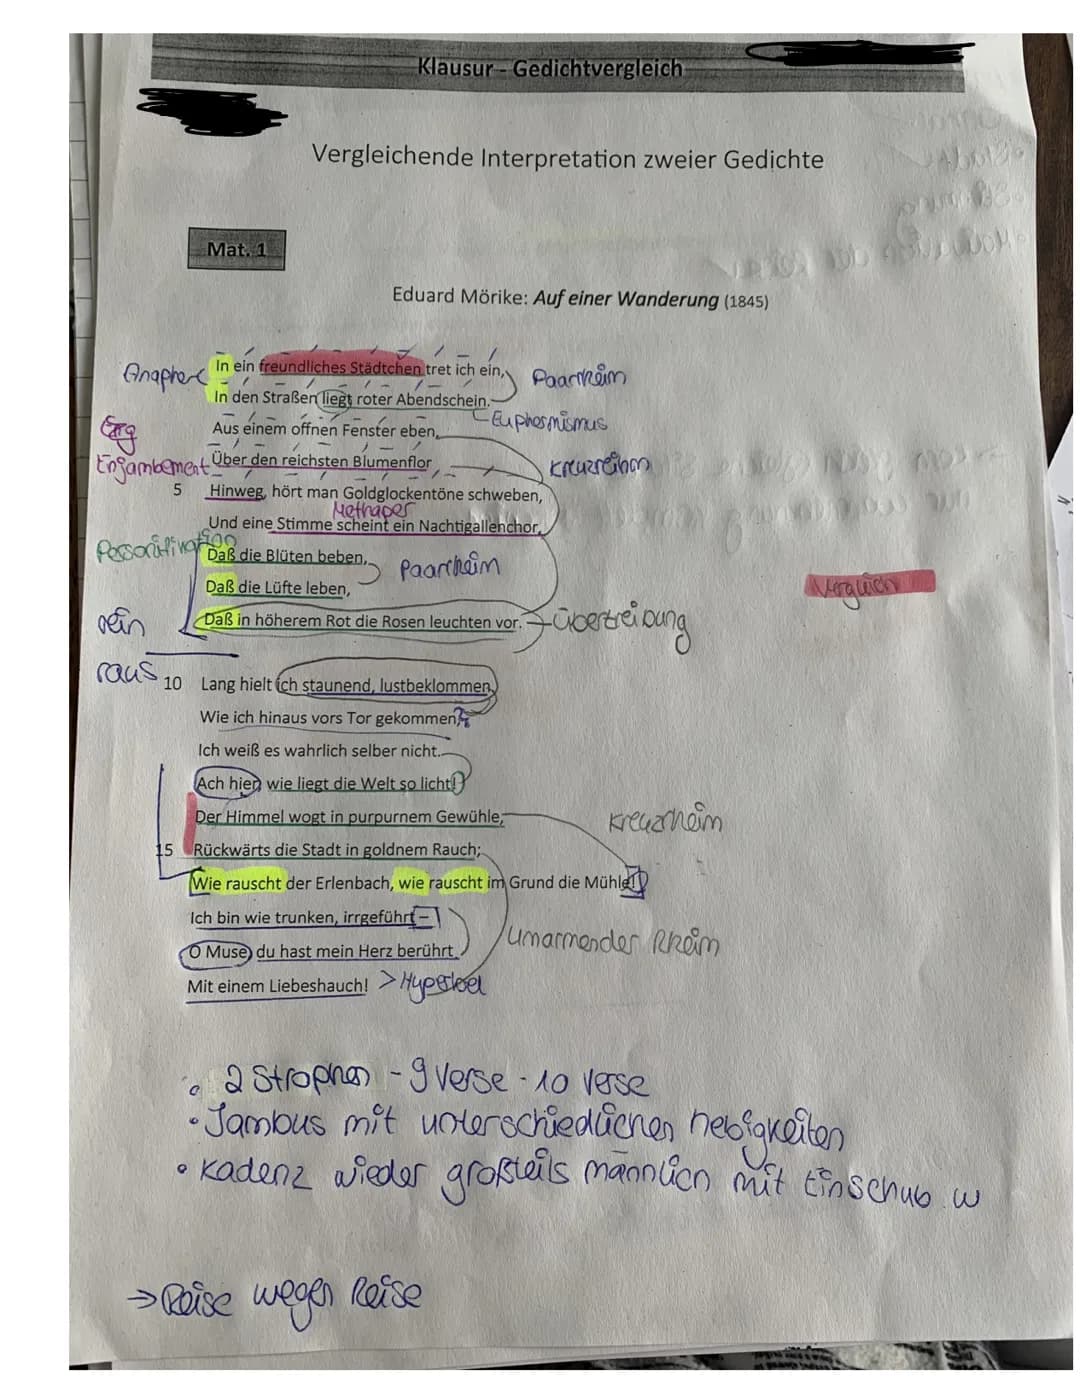 Klausur - Gedichtvergleich
Vergleichende Interpretation zweier Gedichte
Mat. 1
Eduard Mörike: Auf einer Wanderung (1845)
Anapher In ein freundliches Städtchen tret ich ein, Paarrheim
In den Straßen liegt roter Abendschein.
Euphemismus
Aus einem offnen Fenster eben,
Enjambement Über den reichsten Blumenflor Kreuzreihm
5 Hinweg, hört man Goldglockentöne schweben,
Methaper
Und eine Stimme scheint ein Nachtigallenchor,
Personifination
Daß die Blüten beben, Paarrheim
Daß die Lüfte leben,
Vergleich
rein Daß in höherem Rot die Rosen leuchten vor. Übertreibung
raus
10 Lang hielt ich staunend, lustbeklommen,
Wie ich hinaus vors Tor gekommen,
Ich weiß es wahrlich selber nicht.
Ach hier, wie liegt die Welt so licht!
Der Himmel wogt in purpurnem Gewühle, Kreuzrheim
15 Rückwärts die Stadt in goldnem Rauch;
Wie rauscht der Erlenbach, wie rauscht im Grund die Mühle!
Ich bin wie trunken, irrgeführt -
Umarmender Rheim
O Muse, du hast mein Herz berührt
Mit einem Liebeshauch! > Hyperbel
• 2 Strophen - 9 Verse - 10 Verse
• Jambus mit unterschiedlichen hebigkeiten
• Kadenz wieder großteils männlich mit Einschub w
→ Reise wegen Reise